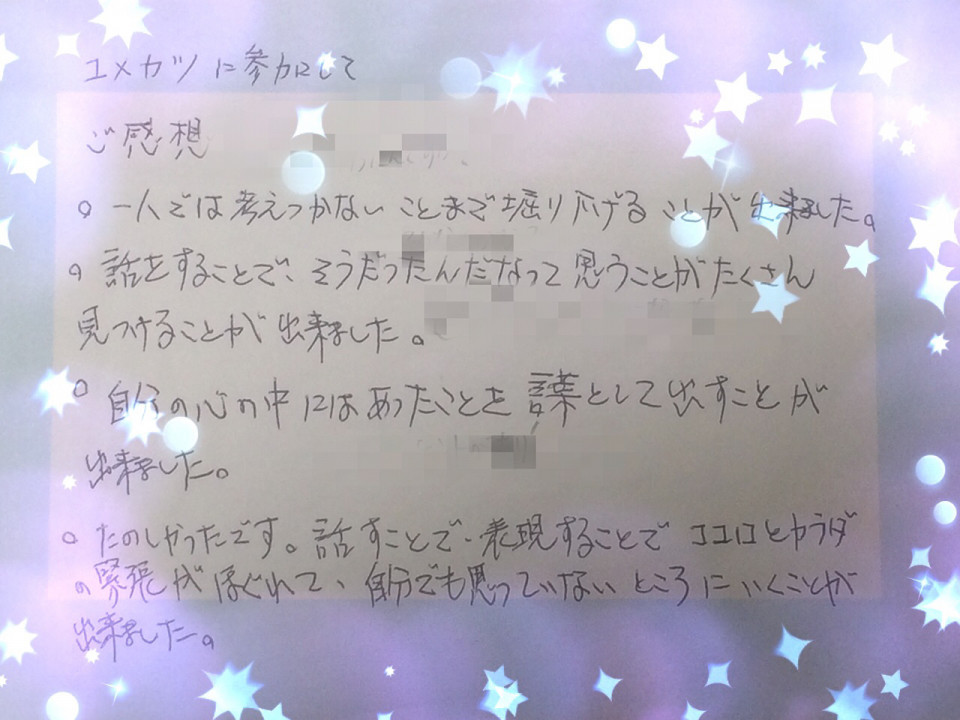 ユメカツに参加して
ご感想
○ 一人では考えつかないことまで掘り下げることが出来ました。
○ 話をすることで、そうだったんだなって思うことがたくさん
見つけることが出来ました。
○ 自分の心の中にはあったことを言葉として出すことが
出来ました。
○ たのしかったです。話すことで、表現することでココロとカラダ
の緊張がほぐれて、自分でも思っていないところにいくことが
出来ました。